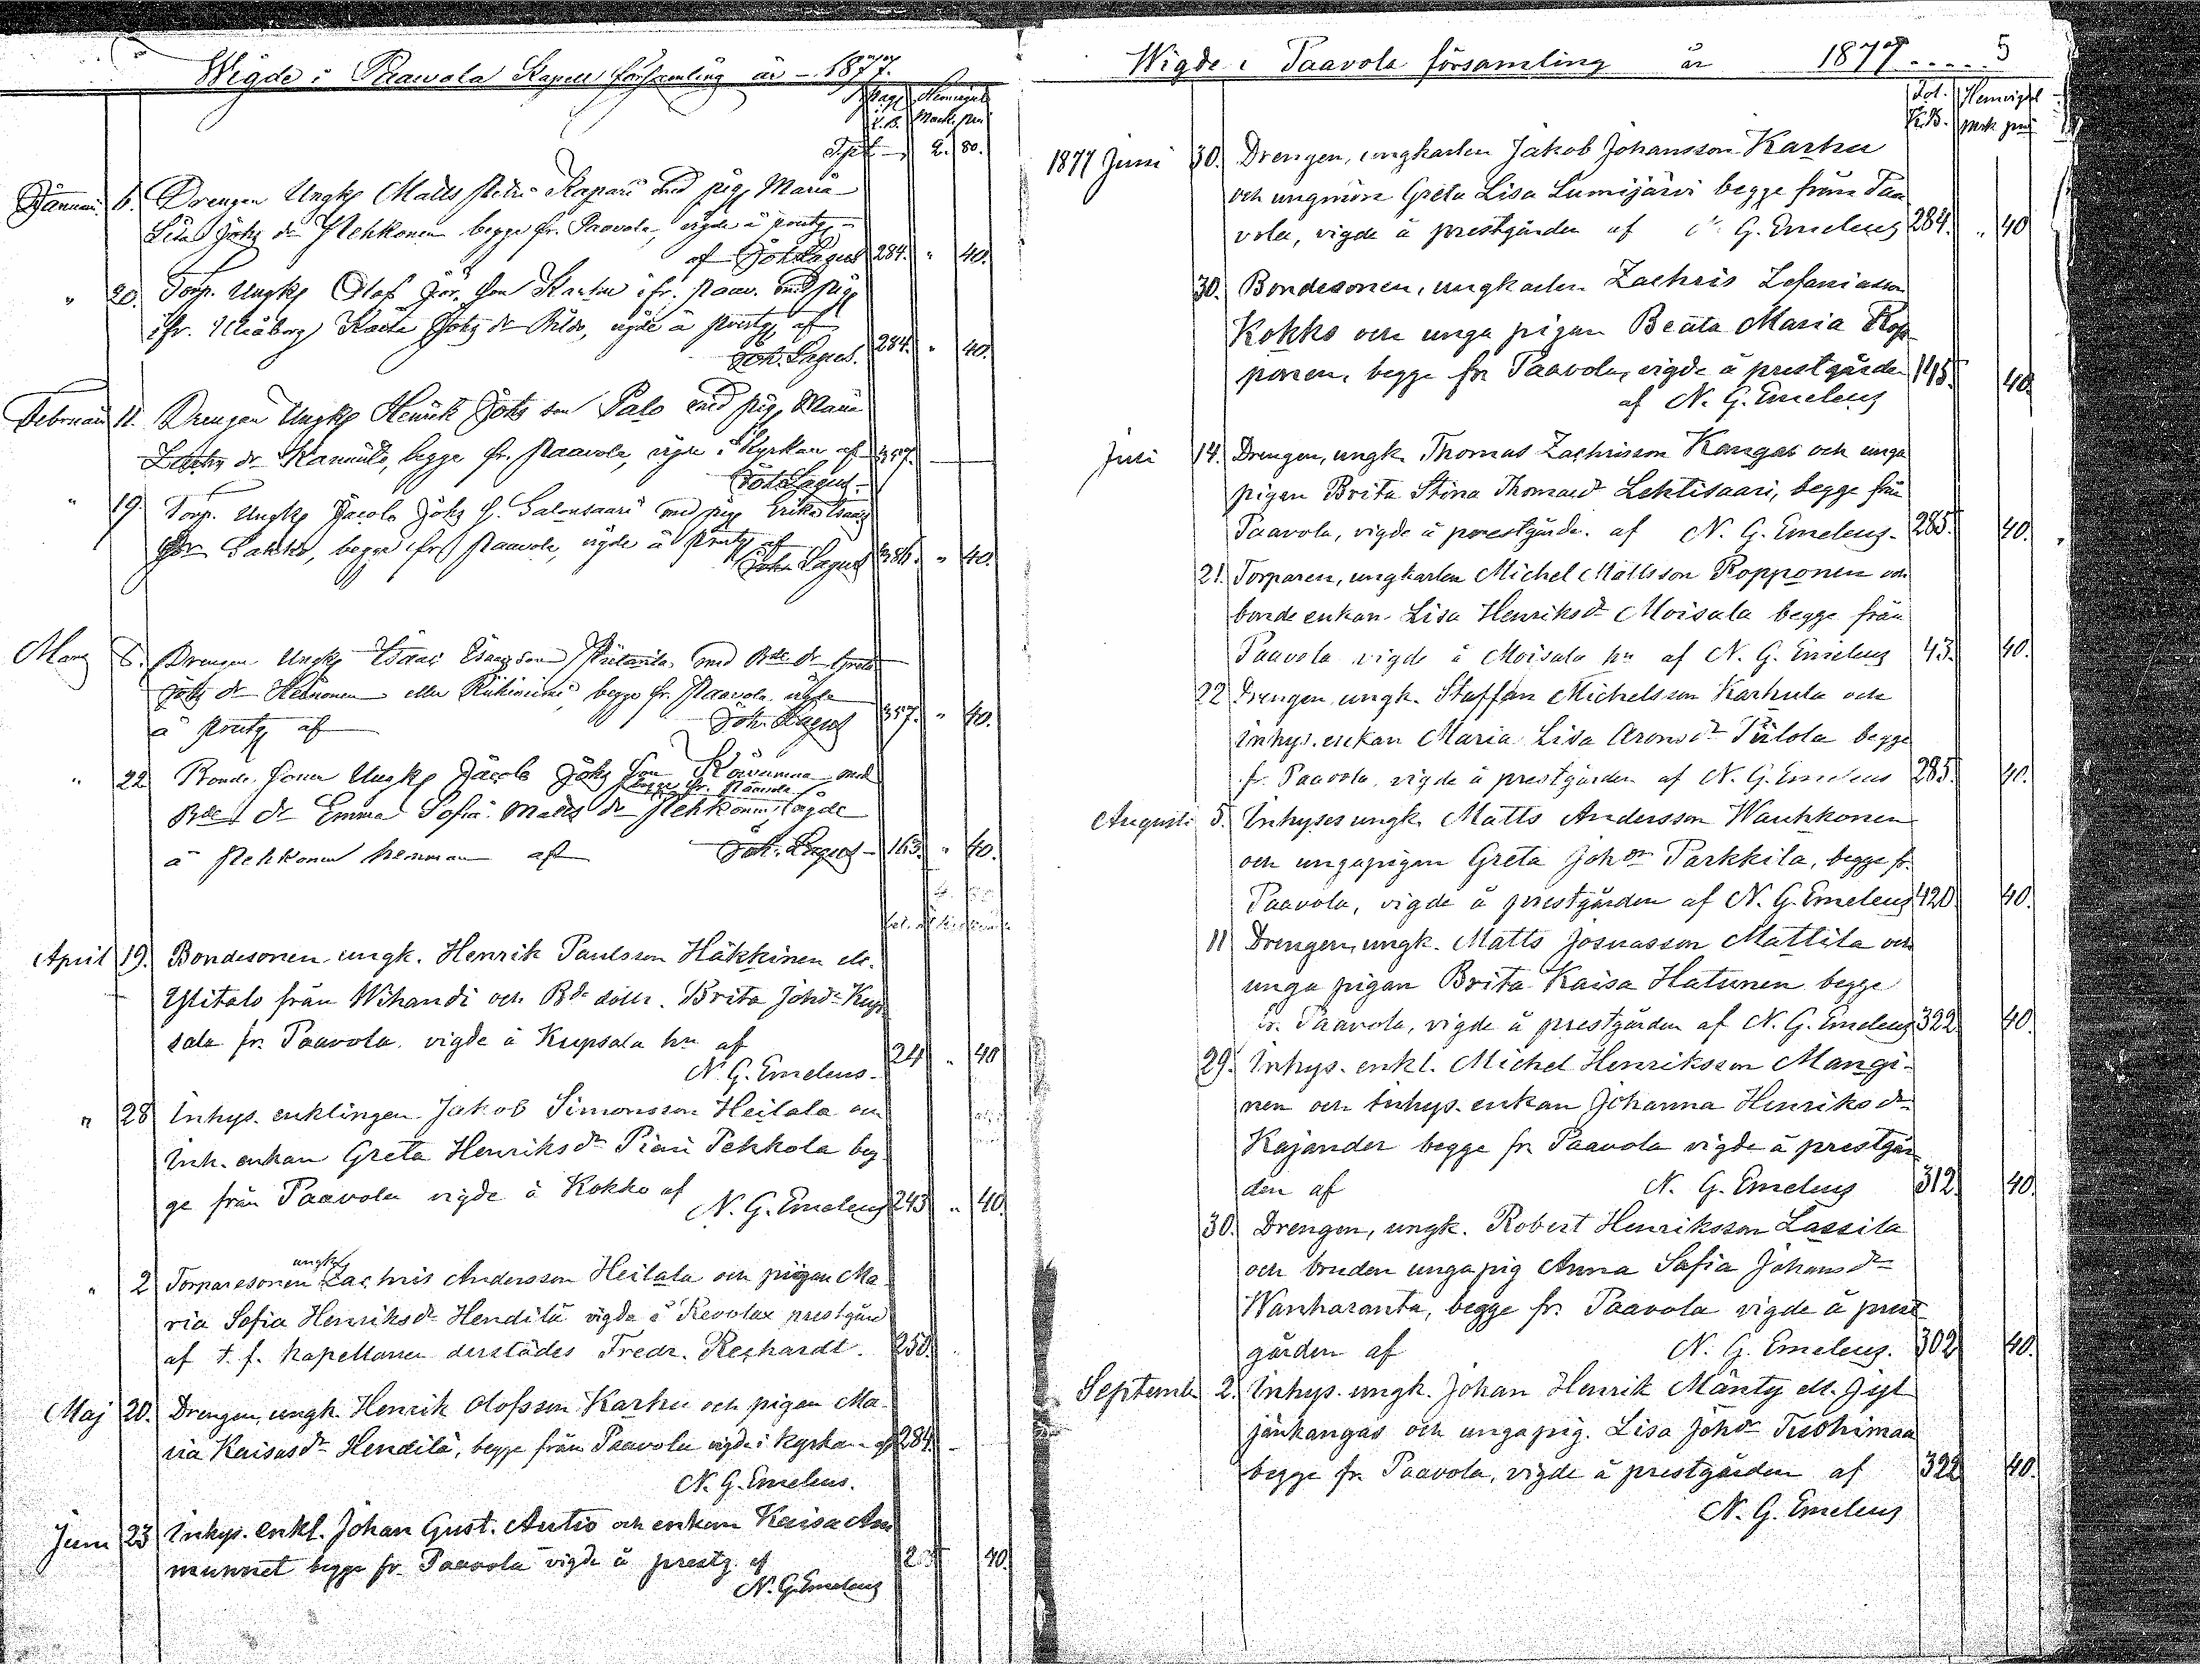 Wigde i Paavola Kapell församling år - 1877.
pag. Hemvigsl
K.B. Mark. pni
Tpt 2. 80.
Januari 6. Drengen Ungk Matts Petri Kapari med pig. Maria
Lisa Joh. dr Pehkonen begge fr. Paavola, vigde å prestg.
af Joh. Lagus 284. " 40.
" 20. Torp. Ungk Olof Jör. son Karhu ifr. Paav. med pig.
ifr. Uleåborg Kaisa Joh. dr vigde å prestg. af
Joh. Lagus. 284. " 40.
Februari 11. Drengen Ungk Henrik Joh. son Palo med pig. Maria
dr begge fr. Paavola, vigde i Kyrkan af 357.
Joh. Lagus.
" 19. Torp. Ungk Jacob Joh. s. Salonsaari med pig. Erika
Sakko, begge ifr. Paavola, vigde å prestg. af
Joh. Lagus 386. " 40.
Mars 8. Drengen Ungk Isaac Isaacson Pietarila med Bde dr Greta
Joh. dr Heinonen eller Riihiniemi, begge fr. Paavola vigde
å prestg af Joh. Lagus 357. " 40.
" 22 Bonde sonen Ungk Jacob Joh. son med
begge fr. Paavola
Bde dr Emma Sofia Matts dr Pehkonen, vigde
å Pehkonen hemman af Joh. Lagus 163. " 40.
April 19. Bondesonen ungk. Henrik Paulsson Häkkinen ell.
Ylitalo från Wihandi och Bde dottr. Brita Johdr Kup-
sala fr. Paavola. vigde å Kupsala hn af
N. G. Emeleus. 24 " 40
" 28 Inhys. enklingen Jakob Simonsson Heilala och
Inh. enkan Greta Henriksdr Piari Pekkola beg-
ge från Paavola vigde å Kokko af N. G. Emeleus 243 " 40.
ungk
" 2 Torparesonen Zachris Andersson Heilala och pigan Ma-
ria Sofia Henriksdr Hendilä vigde å Revolax prestgård
af t. f. Kapellanen derstädes Fredr. Reshardt. 250.
Maj 20. Drengen, ungk. Henrik Olofsson Karhu och pigan Ma-
ria Kaisasdr Hendilä, begge från Paavola vigde i Kyrkan af 284.
N. G. Emeleus.
Juni 23 Inhys. enkl. Johan Gust. Autio och enkan Kaisa Am
munnet begge fr. Paavola vigde å prestg. af 40.
N. G. Emeleus
Wigde i Paavola församling år 1877..... 5
Fol. Hemvigsel
K.B. mrk pni
1877 Juni 30. Drengen, ungkarlen Jakob Johansson Karhu
och ungmön Greta Lisa Lumijärvi begge från Paa
vola, vigde å prestgården af N. G. Emeleus 284. " 40
30. Bondesonen, ungkarlen Zachris Zefaniasson
Kokko och unga pigan Beata Maria Rop
ponen, begge fr Paavola, vigde å prestgården 1115. 40.
af N. G. Emeleus
Juli 14. Drengen, ungk. Thomas Zachrisson Kangas och unga
pigan Brita Stina Thomasdr Lehtisaari, begge från
Paavola, vigde å prestgårde. af N. G. Emeleus. 285. 40.
21. Torparen, ungkarlen Michel Mattsson Ropponen och
bonde enkan Lisa Henriksdr Moisala begge från
Paavola vigde å Moisala hn af N. G. Emeleus 43. 40.
22 Drengen ungk. Staffan Michelsson Karhula och
inhys. enkan Maria Lisa Aronsdr Piilola begge
fr. Paavola, vigde å prestgården af N. G. Emeleus 285. 40.
Augusti 5. Inhyses ungk. Matts Andersson Wanhkonen
och ungapigan Greta Johdr Parkkila, begge fr.
Paavola, vigde å prestgården af N. G. Emeleus 420 40.
11 Drengen, ungk. Matts Josuasson Mattila och
unga pigan Brita Kaisa Hatunen begge
fr. Paavola, vigde å prestgården af N. G. Emeleus 322 40.
29. Inhys. enkl. Michel Henriksson Mangi-
nen och Inhys. enkan Johanna Henriksdr
Kajander begge fr Paavola vigde å prestgår
den af N. G. Emeleus 312 40.
30. Drengen, ungk. Robert Henriksson Lassila
och bruden ungapig Anna Sofia Johansdr
Wanharanta, begge fr. Paavola vigde å prest
gården af N. G. Emeleus. 302 40.
Septemb. 2. Inhys. ungk. Johan Henrik Mänty ell. Jyl
jänkangas och ungapig. Lisa Johdr Tuohimaa
begge fr Paavola, vigde å prestgården af 322 40.
N. G. Emeleus